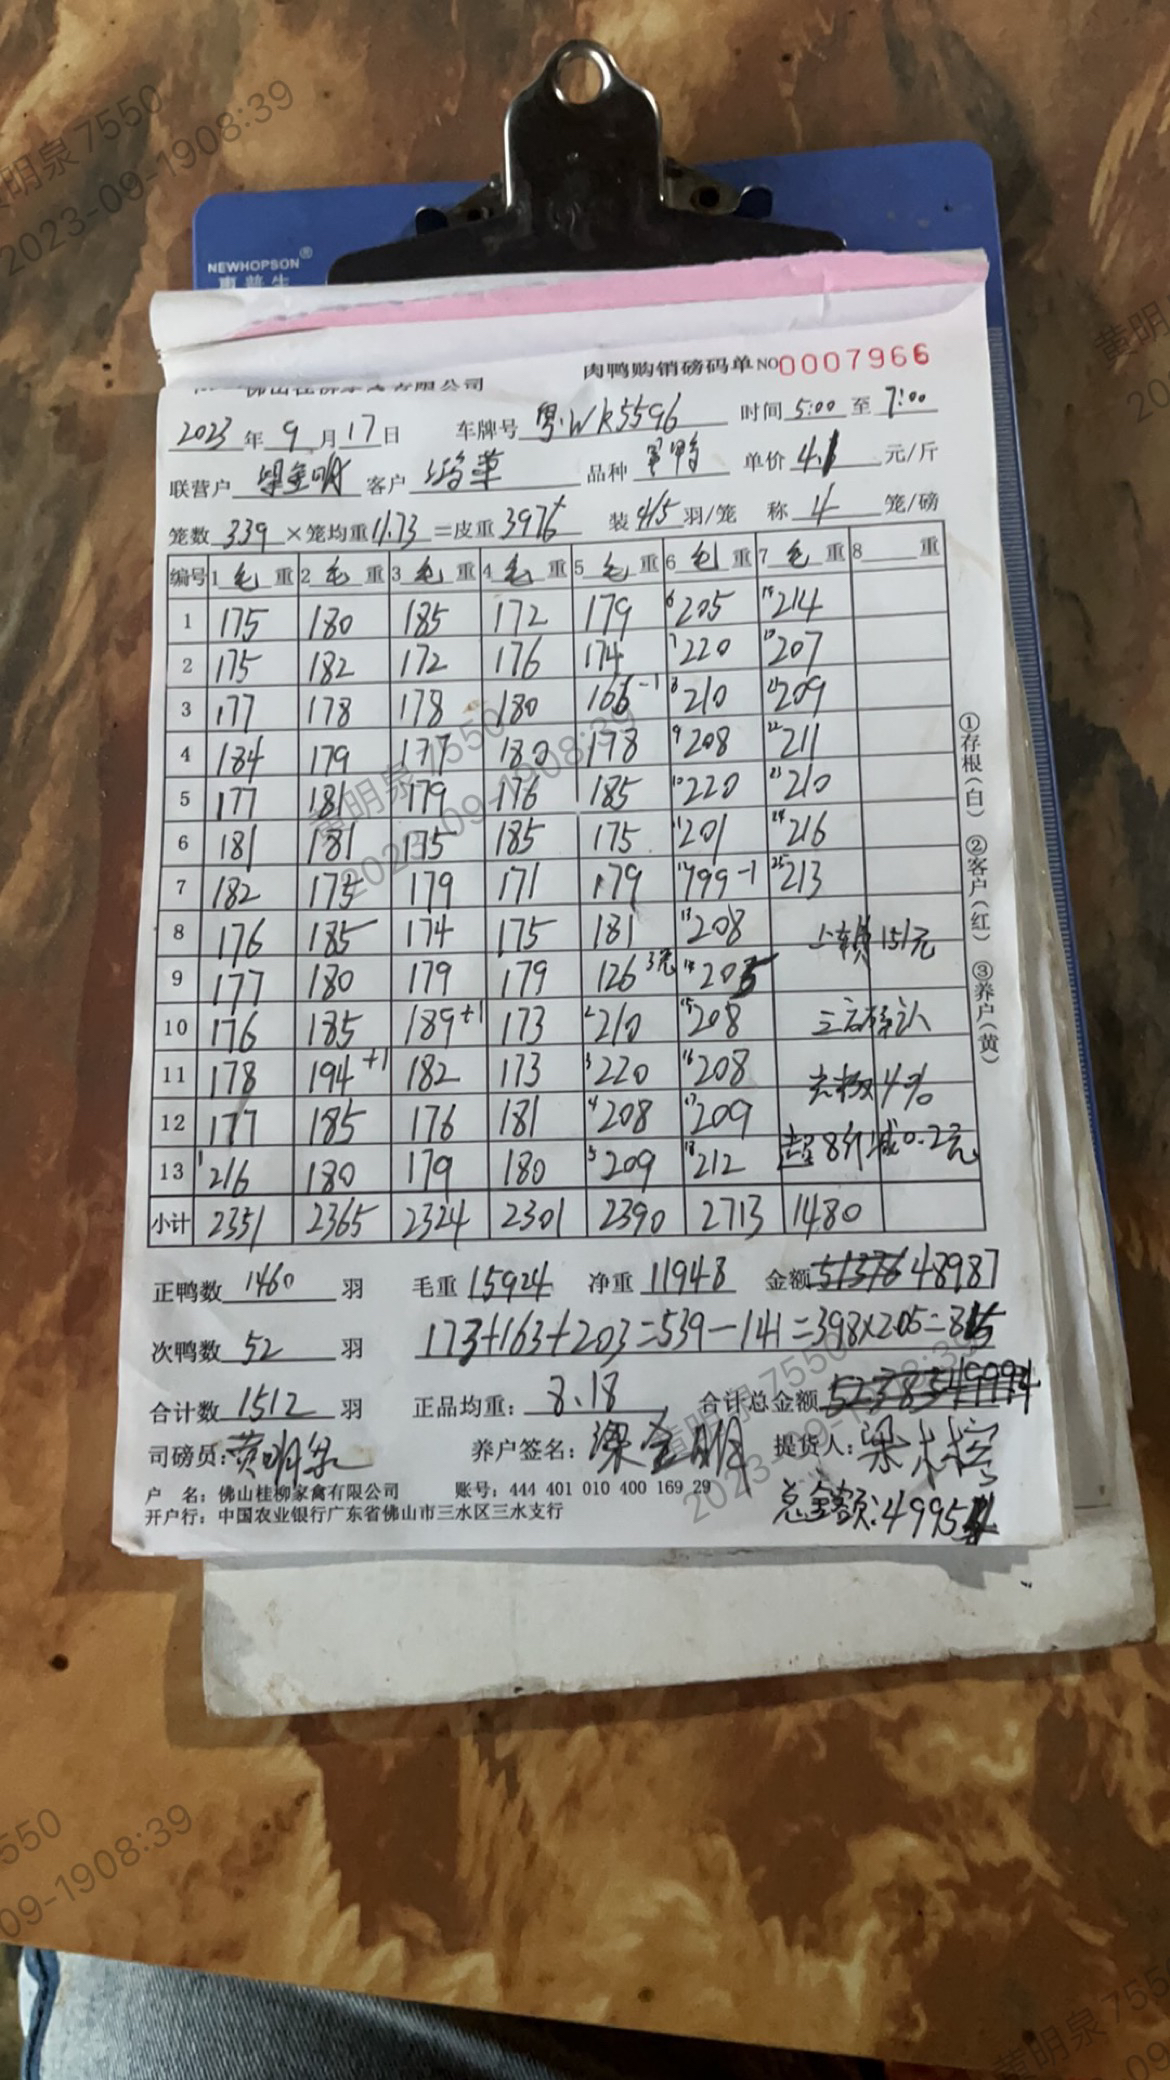 黄明泉 7550
2023-09-1908:39
NEWHOPSON®
惠普生
佛山桂柳家禽有限公司 肉鸭购销磅码单 NO0007966
2023 年 9 月 17 日 车牌号 粤·WK5596 时间 5:00 至 7:00
联营户 梁金明 客户 品种 单价 4.1 元/斤
笼数 339 ×笼均重 11.73 =皮重 3976 装 4/5 羽/笼 称 4 笼/磅
编号 1 毛 重 2 毛 重 3 毛 重 4 毛 重 5 毛 重 6 毛 重 7 毛 重 8 重
1 175 180 185 172 179 6 205 19 214
2 175 182 172 176 174 7 220 20 207
3 177 178 178 180 166 -1 8 210 21 209
4 184 179 177 180 178 9 208 22 211
5 177 181 179 176 185 10 220 23 210
6 181 181 175 185 175 11 201 24 216
7 182 175 179 171 179 12 199 -1 25 213
8 176 185 174 175 181 13 208 上车费 151元
9 177 180 179 179 126 3笼 14 205
10 176 185 189 +1 173 2 210 15 208 三方确认
11 178 194 +1 182 173 3 220 16 208 去料 4%
12 177 185 176 181 4 208 17 209
13 1 216 180 179 180 5 209 18 212 超8斤减0.2元
小计 2351 2365 2324 2301 2390 2713 1480
①存根(白) ②客户(红) ③养户(黄)
正鸭数 1460 羽 毛重 15924 净重 11948 金额 51376 48987
次鸭数 52 羽 173+163+203=539-141=398×2.05=815
合计数 1512 羽 正品均重: 8.18 合计总金额
司磅员: 黄明泉 养户签名: 梁金明 提货人:
户 名: 佛山桂柳家禽有限公司 账号: 444 401 010 400 169 29
总金额: 4995
开户行: 中国农业银行广东省佛山市三水区三水支行